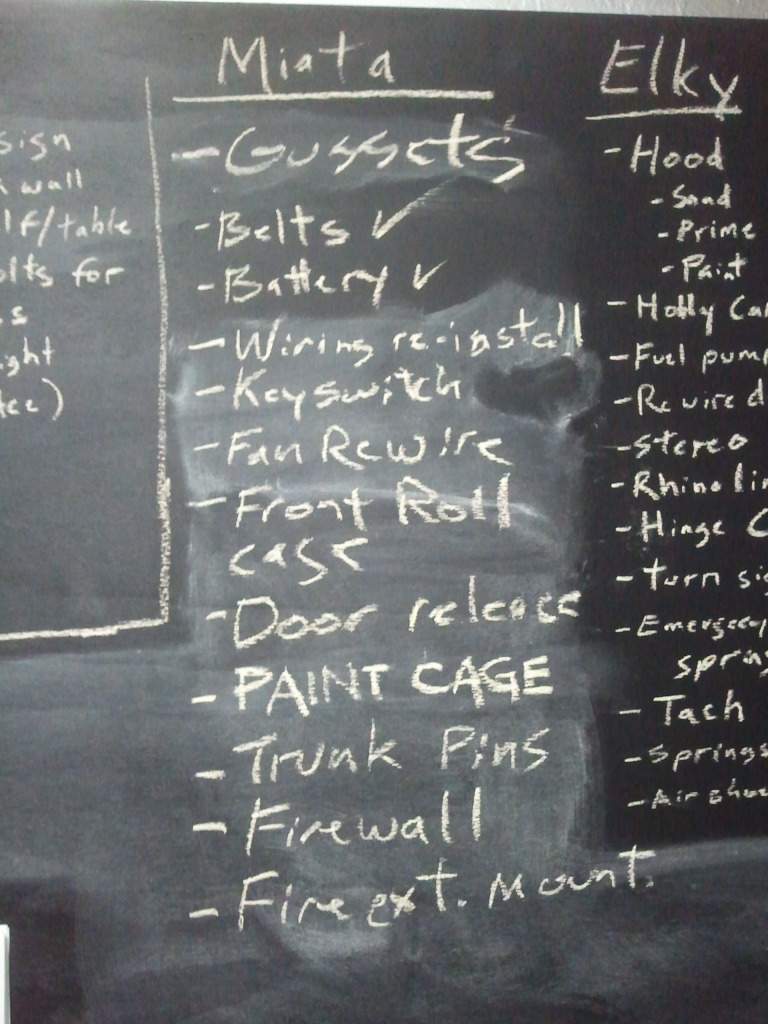 sign
wall
lf/table
for
Miata
- Gussets
- Belts ✓
- Battery ✓
- Wiring re-install
- Keyswitch
- Fan Rewire
- Front Roll
case
- Door release
- PAINT CAGE
- Trunk Pins
- Firewall
- Fire ext. mount.
Elky
- Hood
- Sand
- Prime
- Paint
- Holly
- Fuel pump
- Rewire
- Stereo
- Rhino
- Hinge
- Turn
- Emergency
- Tach
- Springs
- Air